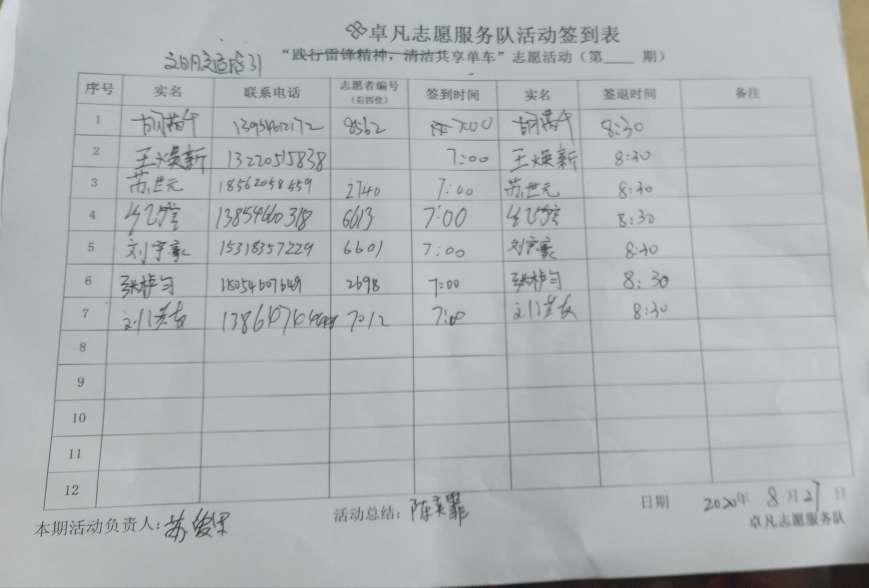 卓凡志愿服务队活动签到表
文明交通路引
“践行雷锋精神，清洁共享单车”志愿活动（第____期）
序号 实名 联系电话 志愿者编号（后四位） 签到时间 实名 签退时间 备注
1 8562 7:00 8:30
2 王焕新 13220515838 7:00 王焕新 8:30
3 苏世元 18562058559 2740 7:00 苏世元 8:30
4 13854660318 6613 7:00 8:30
5 刘宇豪 15318357229 6601 7:00 刘宇豪 8:30
6 18054607649 2698 7:00 8:30
7 7012 7:00 8:30
8
9
10
11
12
本期活动负责人: 活动总结: 日期 2020年 8月27日
卓凡志愿服务队